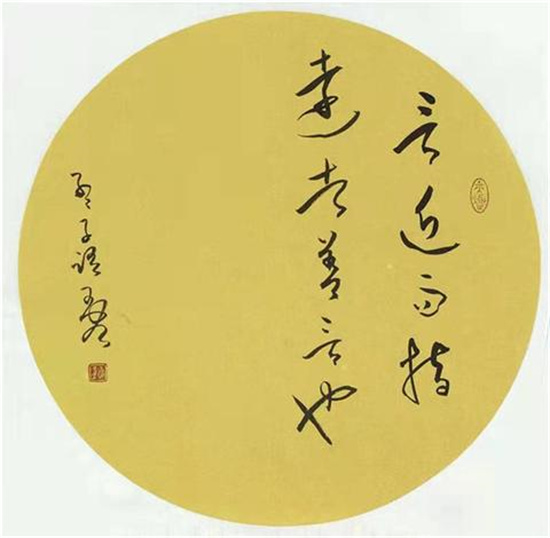 言近而指
远者善言也
孟子语